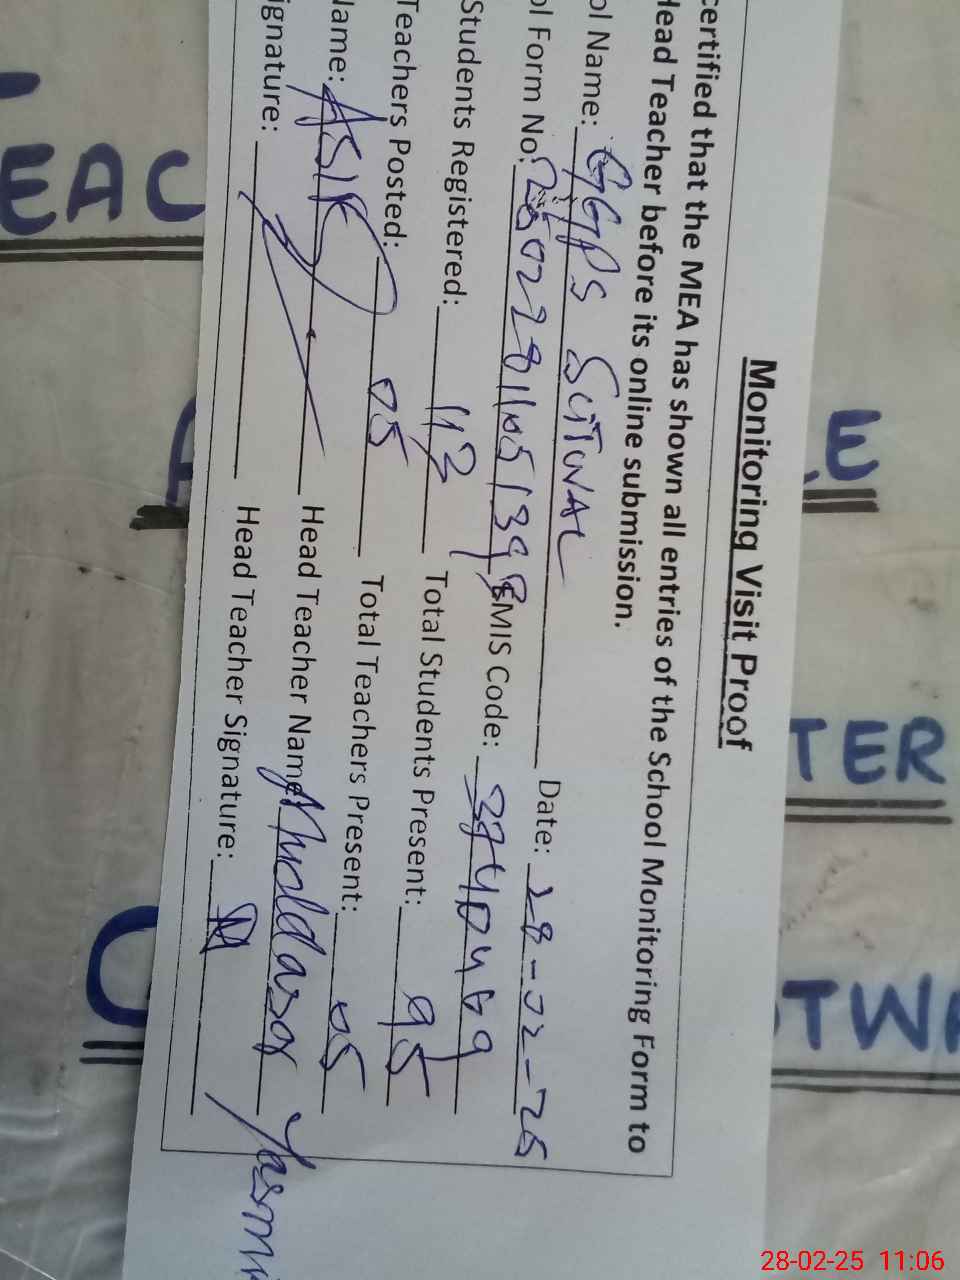 Monitoring Visit Proof
certified that the MEA has shown all entries of the School Monitoring Form to
Head Teacher before its online submission.
ol Name: GGPS SCITWAL Date: 28-02-25
ol Form No: EMIS Code: 3740469
Students Registered: 113 Total Students Present: 95
Teachers Posted: 05 Total Teachers Present: 05
Name: ASIF Head Teacher Name: Muddasar Yasmi
ignature: Head Teacher Signature:
TEAC
E
TER
TW
28-02-25 11:06